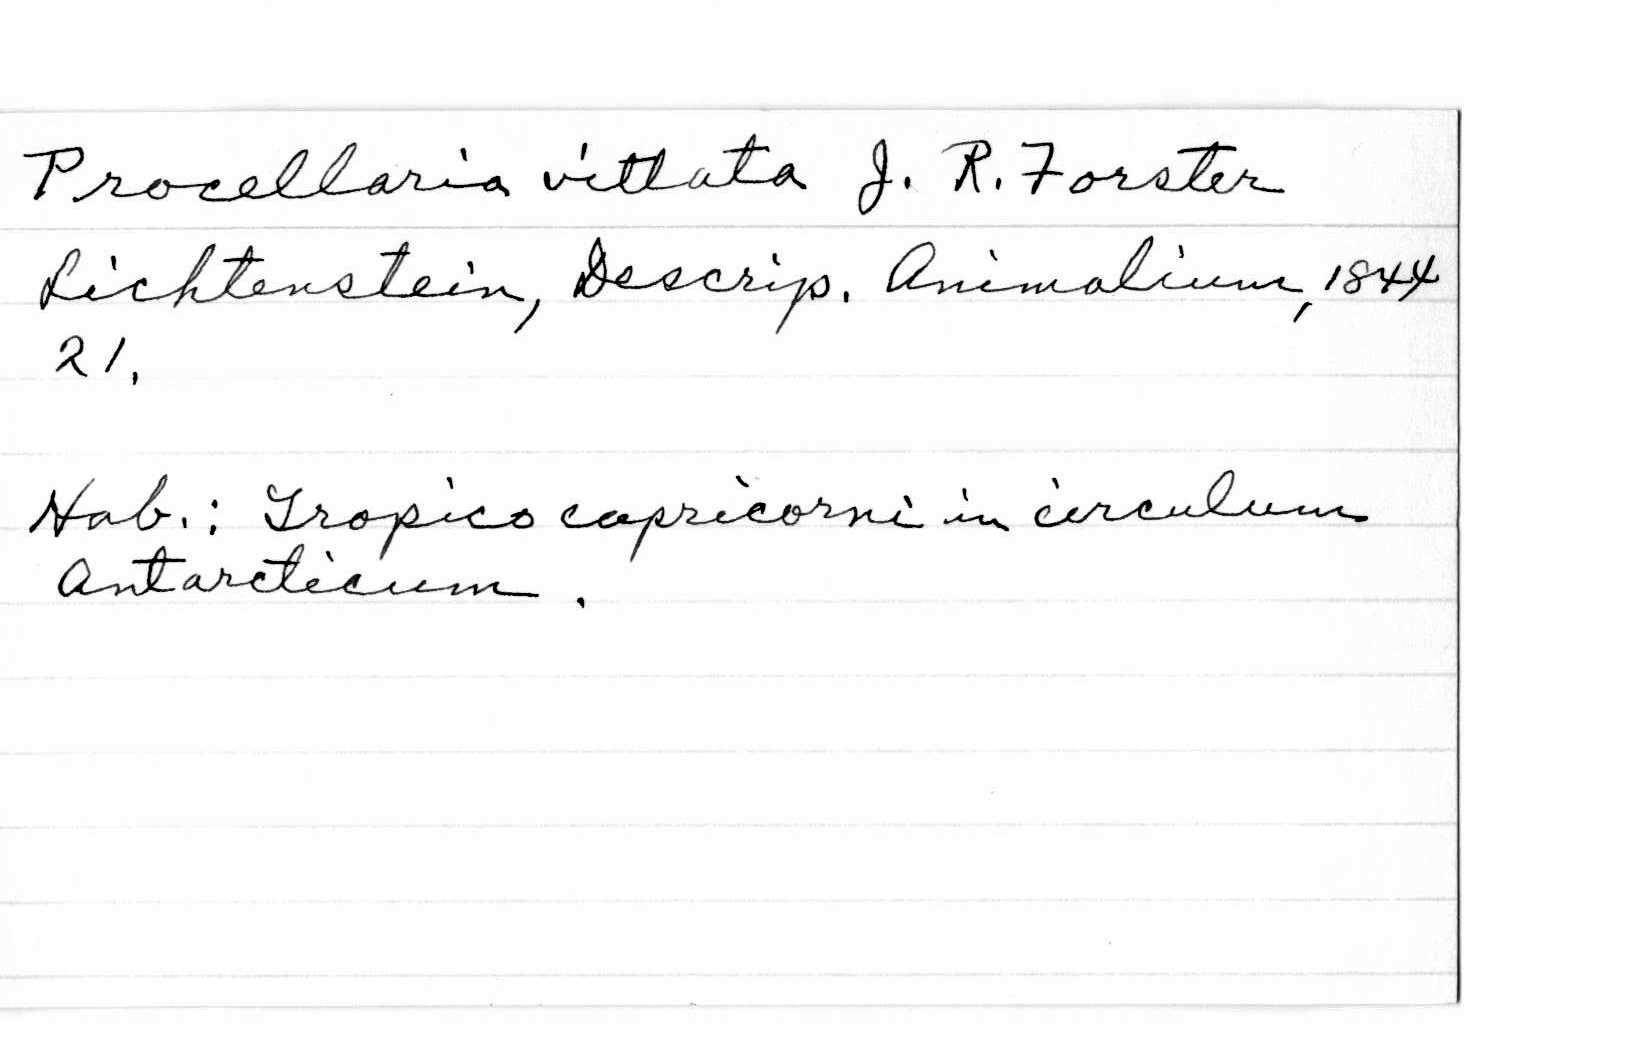 Procellaria vittata J. R. Forster
Lichtenstein, Descrip. Animalium, 1844
21.
Hab.: Tropico capricorni in circulum
Antarcticum.